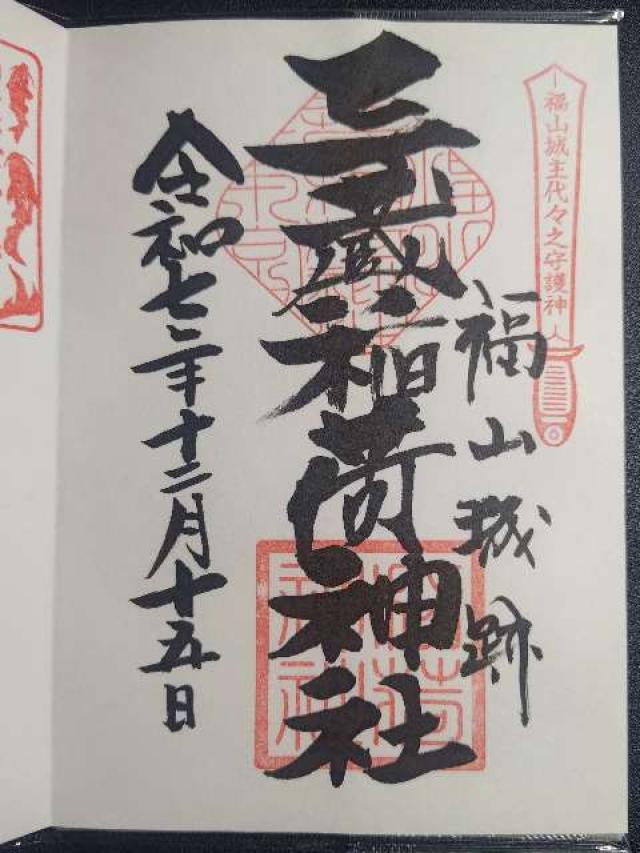 福山城主代々之守護神
福山城跡
三蔵稲荷神社
令和七年十二月十五日